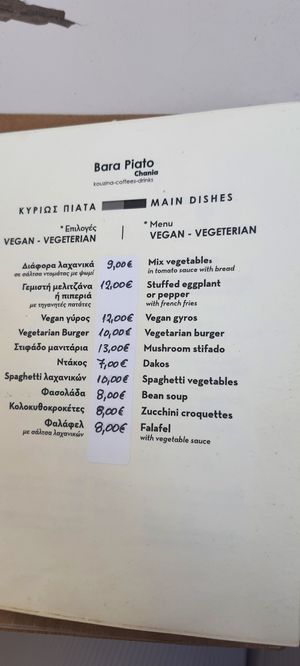 Bara Piato
Chania
kouzina-coffees-drinks
ΚΥΡΙΩΣ ΠΙΑΤΑ MAIN DISHES
* Επιλογές | * Menu
VEGAN - VEGETERIAN VEGAN - VEGETERIAN
Διάφορα λαχανικά 9,00€ Mix vegetables
σε σάλτσα ντομάτας με ψωμί in tomato sauce with bread
Γεμιστή μελιτζάνα 12,00€ Stuffed eggplant
ή πιπεριά or pepper
με τηγανητές πατάτες with french fries
Vegan γύρος 12,00€ Vegan gyros
Vegetarian Burger 10,00€ Vegetarian burger
Στιφάδο μανιτάρια 13,00€ Mushroom stifado
Ντάκος 7,00€ Dakos
Spaghetti λαχανικών 10,00€ Spaghetti vegetables
Φασολάδα 8,00€ Bean soup
Κολοκυθοκροκέτες 8,00€ Zucchini croquettes
Φαλάφελ 8,00€ Falafel
με σάλτσα λαχανικών with vegetable sauce